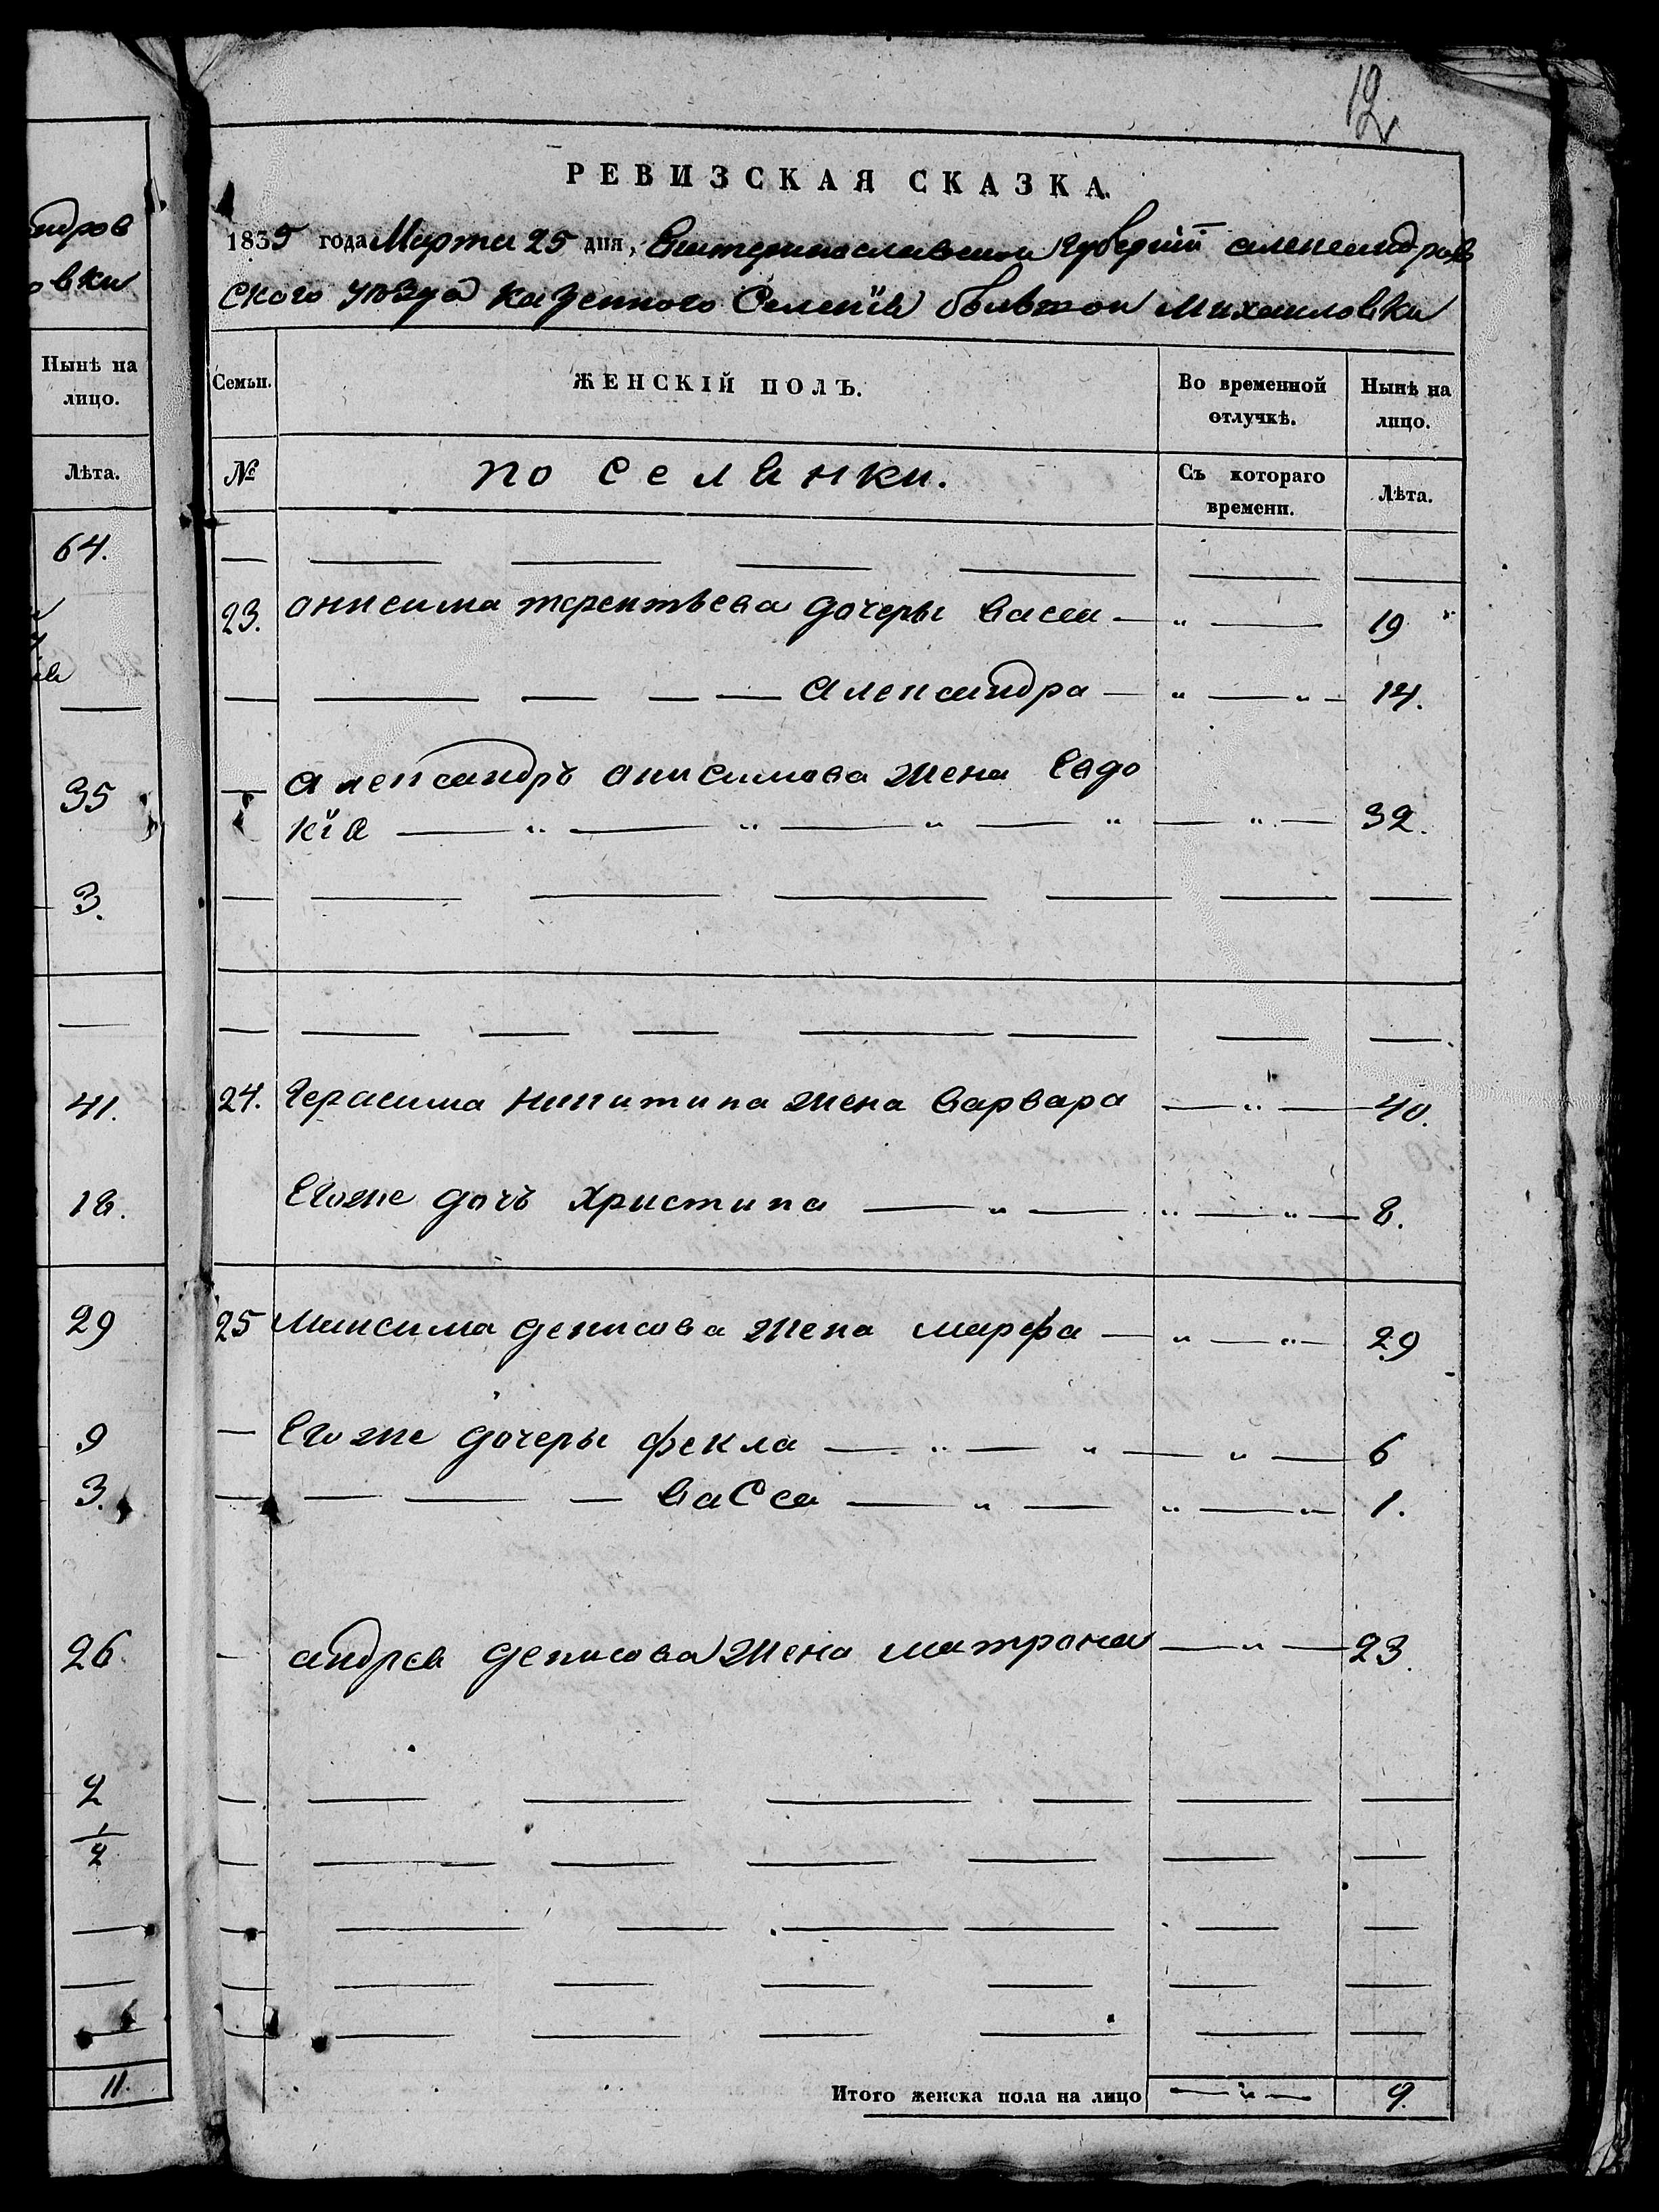 12
РЕВИЗСКАЯ СКАЗКА.
1835 года Марта 25 дня, Екатеринославской Губернїй александров
ского уѣзда казенного Селенїя большой михаиловки
Семьи.
ЖЕНСКІЙ ПОЛЪ.
Во временной отлучкѣ.
Нынѣ на лицо.
№
по селянки.
Съ котораго времени.
Лѣта.
23. онисима терентьева дочеры васса 19
александра 14.
александръ онисимова жена евдо
кїя 32.
24. Герасима никитина жена варвара 40.
Егоже дочъ христина 8.
25 максима денисова жена марфа 29
Егоже дочеры фекла 6
васса 1.
андрея денисова жена матрона 23.
Итого женска пола на лицо 9.
андров
овки
Нынѣ на
лицо.
Лѣта.
64.
35
3.
41.
18.
29
9
3.
26
2
1/2
11.